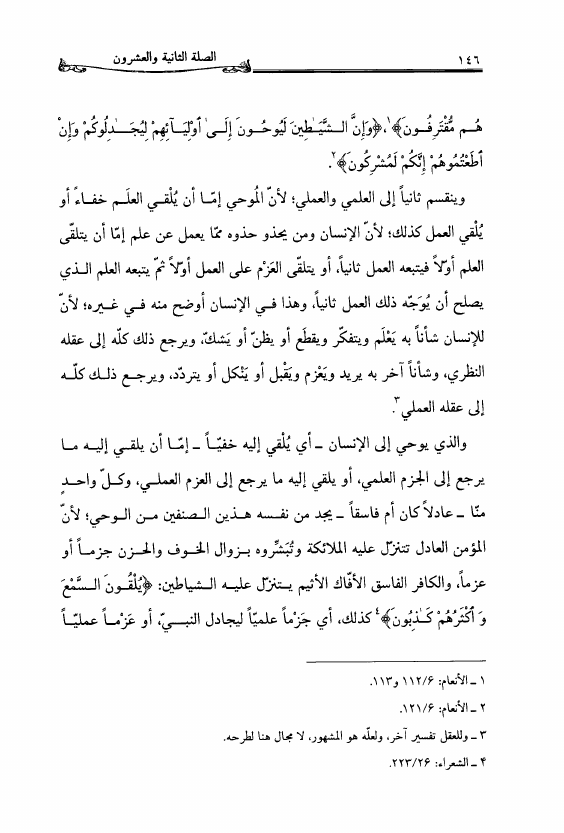 ١٤٦ الصلة الثانية والعشرون
هُم مُّقْتَرِفُونَ﴾١، ﴿وَإِنَّ الشَّيَـٰطِينَ لَيُوحُونَ إِلَىٰ أَوْلِيَـآئِهِمْ لِيُجَـٰدِلُوكُمْ وَإِنْ
أَطَعْتُمُوهُمْ إِنَّكُمْ لَمُشْرِكُونَ﴾٢.
وينقسم ثانياً إلى العلمي والعملي؛ لأنّ المُوحي إمّا أن يُلْقي العلَم خفاءً أو
يُلْقي العمل كذلك؛ لأنّ الإنسان ومن يحذو حذوه ممّا يعمل عن علم إمّا أن يتلقّى
العلم أوّلاً فيتبعه العمل ثانياً، أو يتلقّى العَزْم على العمل أوّلاً ثمّ يتبعه العلم الذي
يصلح أن يُوَجّه ذلك العمل ثانياً، وهذا في الإنسان أوضح منه في غيره؛ لأنّ
للإنسان شأناً به يَعْلَم ويتفكّر ويقطَع أو يظنّ أو يَشكّ، ويرجع ذلك كلّه إلى عقله
النظري، وشأناً آخر به يريد ويَعْزم ويَقْبل أو يَنْكل أو يتردّد، ويرجع ذلك كلّه
إلى عقله العملي٣.
والذي يوحي إلى الإنسان ـ أي يُلْقي إليه خفيّاً ـ إمّا أن يلقي إليه ما
يرجع إلى الجزم العلمي، أو يلقي إليه ما يرجع إلى العزم العملي، وكلّ واحدٍ
منّا ـ عادلاً كان أم فاسقاً ـ يجد من نفسه هذين الصنفين من الوحي؛ لأنّ
المؤمن العادل تتنزّل عليه الملائكة وتُبَشّروه بزوال الخوف والحزن جزماً أو
عزماً، والكافر الفاسق الأفّاك الأثيم يتنزّل عليه الشياطين: ﴿يُلْقُونَ السَّمْعَ
وَأَكْثَرُهُمْ كَـٰذِبُونَ﴾٤ كذلك، أي جَزْماً علميّاً ليجادل النبيّ، أو عَزْماً عمليّاً
١ ـ الأنعام: ١١٢/۶ و١١٣.
٢ ـ الأنعام: ١٢١/۶.
٣ ـ وللعقل تفسير آخر، ولعلّه هو المشهور، لا مجال هنا لطرحه.
۴ ـ الشعراء: ٢٢٣/٢۶.